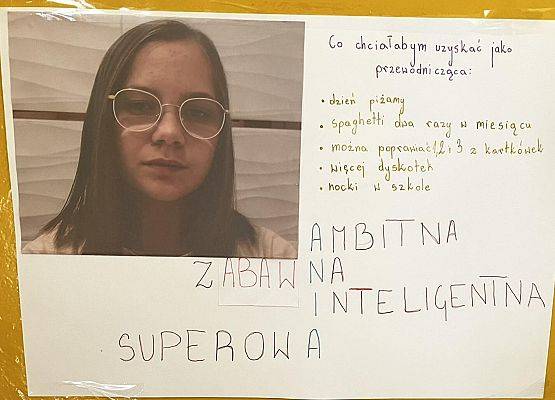 Co chciałabym uzyskać jako
przewodnicząca:
• dzień piżamy
• spaghetti dwa razy w miesiącu
• można poprawiać 1,2 i 3 z kartkówek
• więcej dyskotek
• nocki w szkole
AMBITNA
ZABAWNA
INTELIGENTNA
SUPEROWA